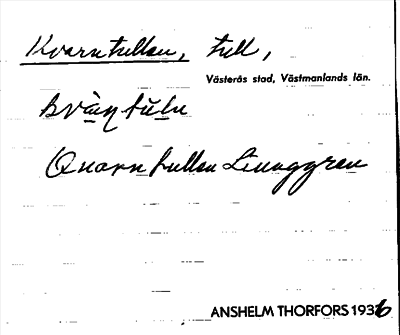 Kvarntullen, tull,
Västerås stad, Västmanlands län.
kvàn̥ tŭlu
Quarn tullen Liunggren
ANSHELM THORFORS 1936